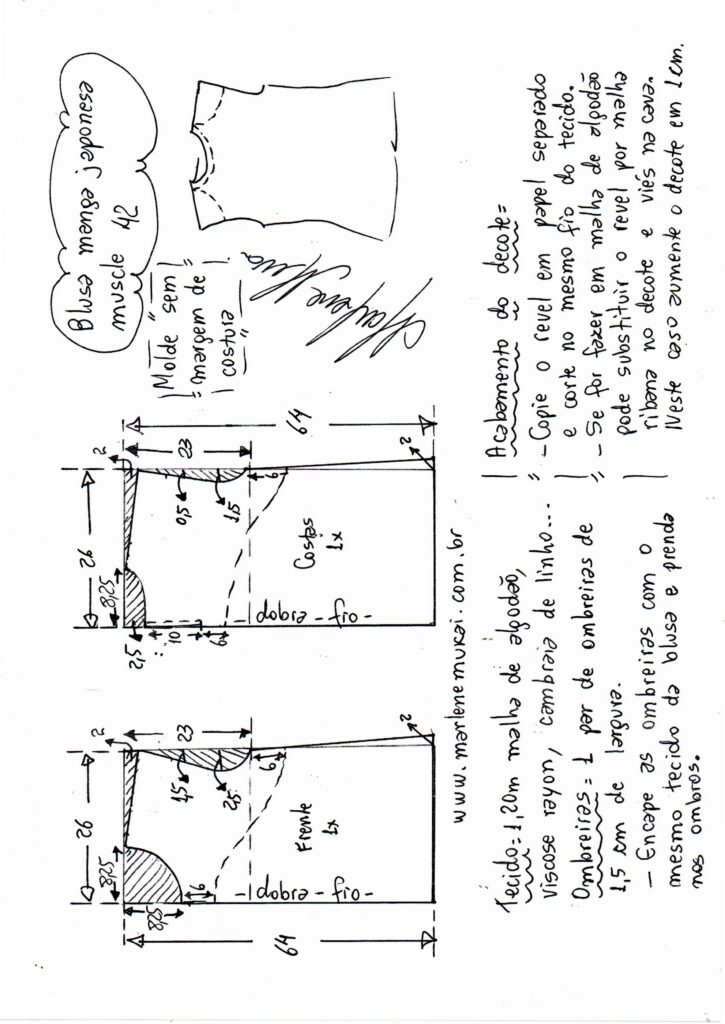 Blusa manga japonesa
muscle 42
Molde sem
margem de
costura
Marlene Mukai
26
8,25
8,5
2
23
1,5
2,5
6
6
64
dobra - fio -
Frente
1x
2
26
8,25
2,5
2
23
0,5
1,5
10
6
6
64
dobra - fio -
Costas
1x
2
www.marlenemukai.com.br
Tecido = 1,20m malha de algodão,
viscose rayon, cambraia de linho...
Ombreiras = 1 par de ombreiras de
1,5 cm de largura.
- Encape as ombreiras com o
mesmo tecido da blusa e prenda
nos ombros.
Acabamento do decote =
- Copie o revel em papel separado
e corte no mesmo fio do tecido.
- Se for fazer em malha de algodão
pode substituir o revel por malha
ribana no decote e viés na cava.
Neste caso aumente o decote em 1cm.